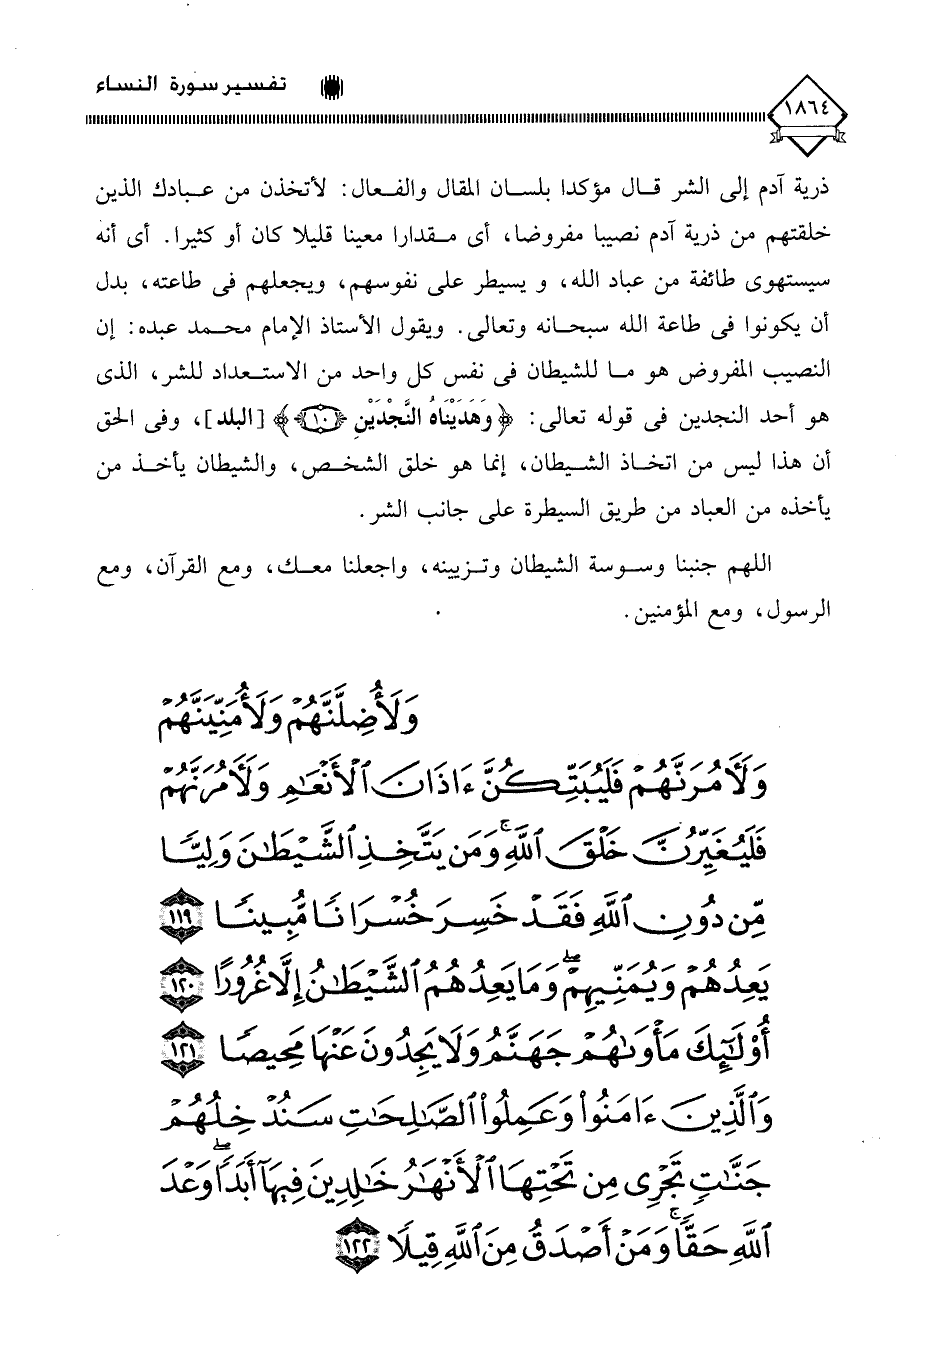 ١٨٦٤
تفسير سورة النساء
ذرية آدم إلى الشر قال مؤكدا بلسان المقال والفعال: لأتخذن من عبادك الذين
خلقتهم من ذرية آدم نصيبا مفروضا، أى مقدارا معينا قليلا كان أو كثيرا. أى أنه
سيستهوى طائفة من عباد الله، و يسيطر على نفوسهم، ويجعلهم فى طاعته، بدل
أن يكونوا فى طاعة الله سبحانه وتعالى. ويقول الأستاذ الإمام محمد عبده: إن
النصيب المفروض هو ما للشيطان فى نفس كل واحد من الاستعداد للشر، الذى
هو أحد النجدين فى قوله تعالى: ﴿وَهَدَيْنَاهُ النَّجْدَيْنِ ﴿١٠﴾﴾ [البلد]، وفى الحق
أن هذا ليس من اتخاذ الشيطان، إنما هو خلق الشخص، والشيطان يأخذ من
يأخذه من العباد من طريق السيطرة على جانب الشر.
اللهم جنبنا وسوسة الشيطان وتزيينه، واجعلنا معك، ومع القرآن، ومع
الرسول، ومع المؤمنين.
وَلَأُضِلَّنَّهُمْ وَلَأُمَنِّيَنَّهُمْ
وَلَآمُرَنَّهُمْ فَلَيُبَتِّكُنَّ ءَاذَانَ ٱلْأَنْعَٰمِ وَلَآمُرَنَّهُمْ
فَلَيُغَيِّرُنَّ خَلْقَ ٱللَّهِۚ وَمَن يَتَّخِذِ ٱلشَّيْطَٰنَ وَلِيًّا
مِّن دُونِ ٱللَّهِ فَقَدْ خَسِرَ خُسْرَانًا مُّبِينًا ١١٩
يَعِدُهُمْ وَيُمَنِّيهِمْۖ وَمَا يَعِدُهُمُ ٱلشَّيْطَٰنُ إِلَّا غُرُورًا ١٢٠
أُو۟لَٰٓئِكَ مَأْوَىٰهُمْ جَهَنَّمُ وَلَا يَجِدُونَ عَنْهَا مَحِيصًا ١٢١
وَٱلَّذِينَ ءَامَنُوا۟ وَعَمِلُوا۟ ٱلصَّٰلِحَٰتِ سَنُدْخِلُهُمْ
جَنَّٰتٍ تَجْرِى مِن تَحْتِهَا ٱلْأَنْهَٰرُ خَٰلِدِينَ فِيهَآ أَبَدًاۖ وَعْدَ
ٱللَّهِ حَقًّاۚ وَمَنْ أَصْدَقُ مِنَ ٱللَّهِ قِيلًا ١٢٢